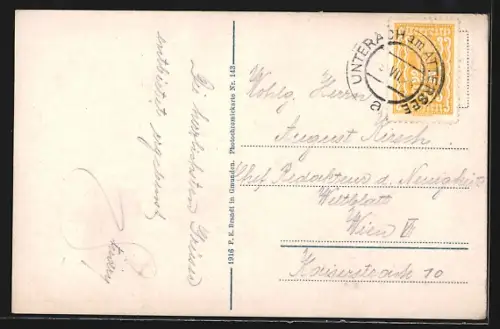 Die herzlichsten Grüsse
entbietet ergebenst
1916 P. E. Brandt in Gmunden. Photochromiekarte Nr. 143
UNTERACH am ATTERSEE
VII
a
Wohlg. Herrn
August Kirsch
Chef Redakteur d. Neuigkeits
Weltblatt
Wien VII
Kaiserstrasse 10